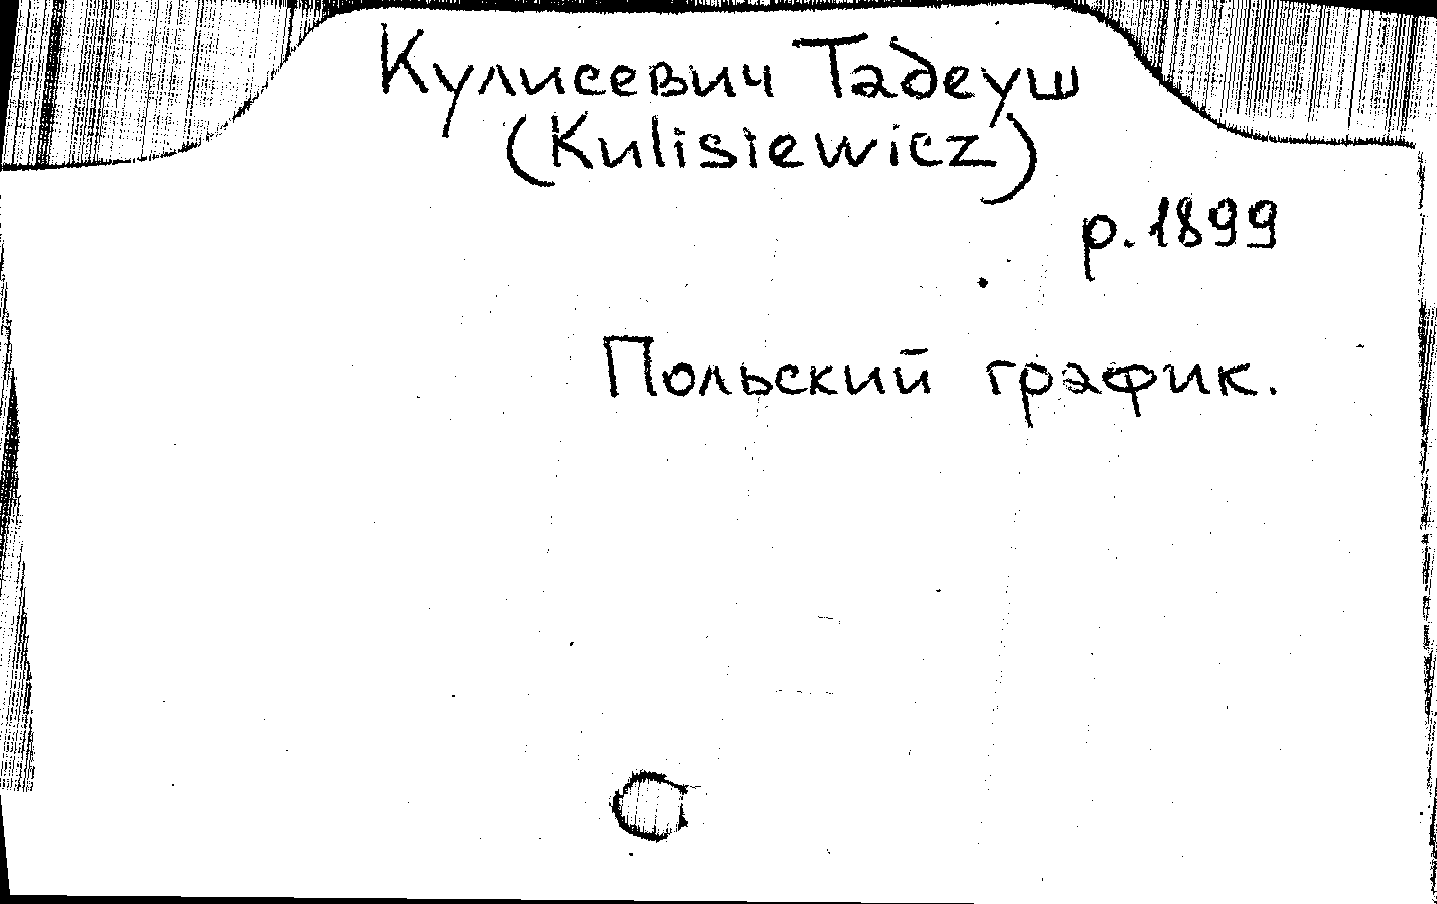 Кулисевич Тадеуш
(Kulisiewicz)
р. 1899
Польский график.